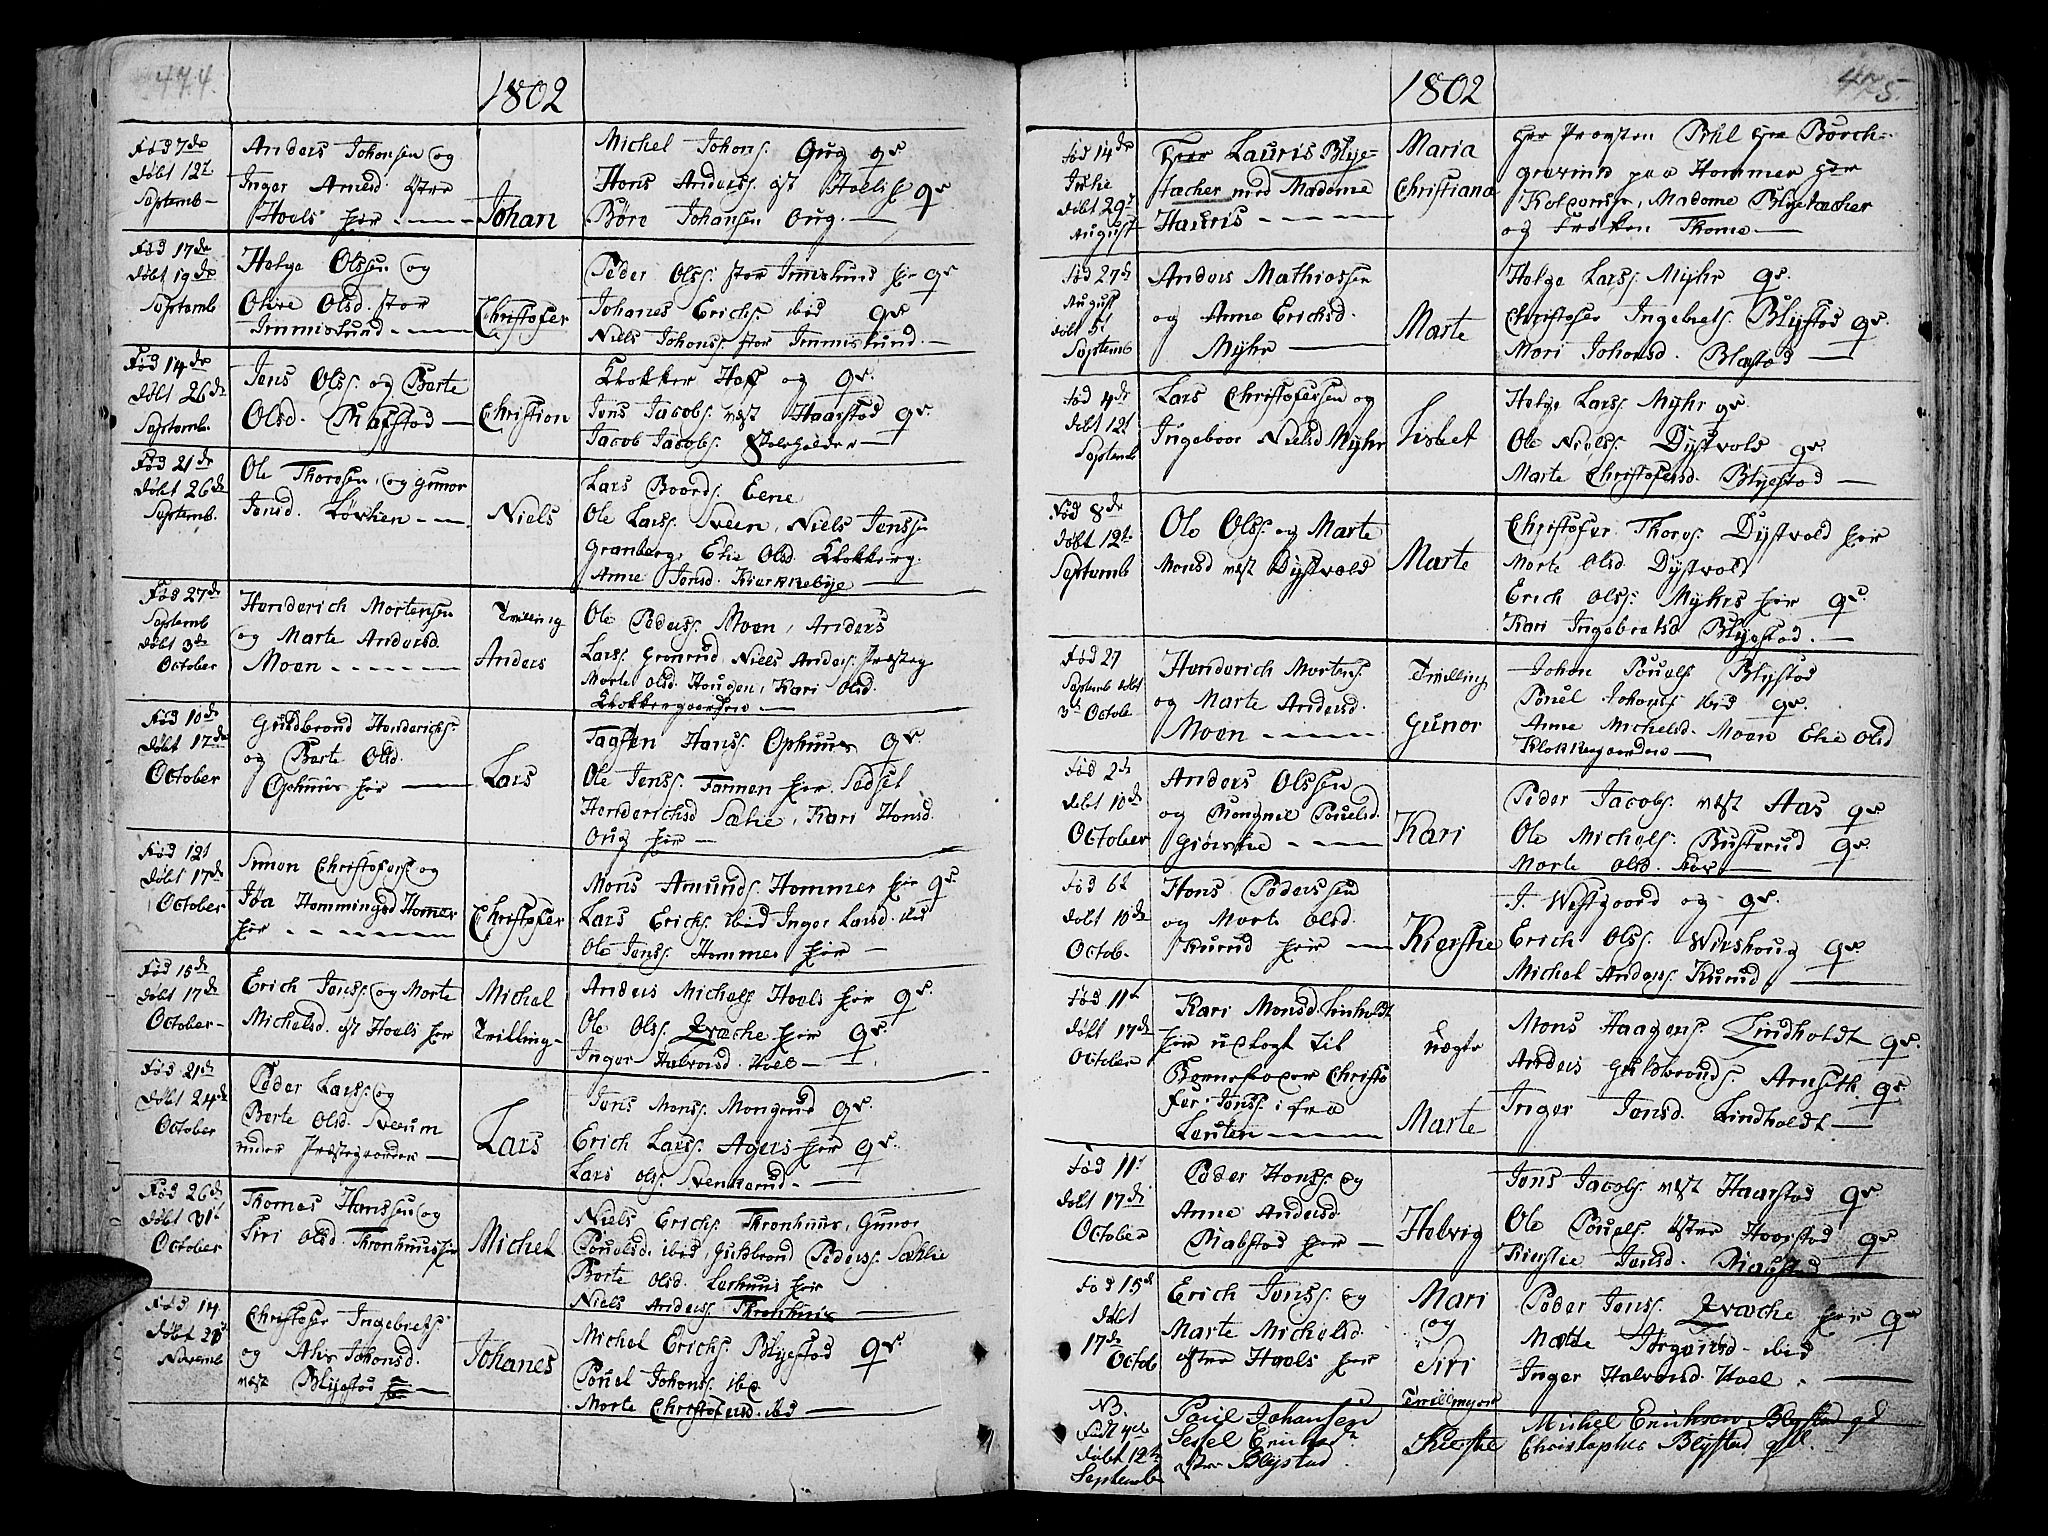 474.
1802
Fød 7de
døbt 12t
Septemb
Anders Johonsen og
Inger Amesd. Østre
Hoels her
Johan
Michel Johons. Oug gs.
Hans Anderss. øst Hoelis gs.
Børe Johansen Oug.
Fød 17de
døbt 19de
Septemb
Helge Olssen og
Olive Olsd. stor
Immislund
Christofer
Peder Olss. stor Immislund her gs.
Johanes Erichs. ibid gs.
Niels Johons. stor Immislund.
Fød 14de
døbt 26de
Septemb.
Jens Olss. og Berte
Olsd. Rafstad
Christion
Klokker Hoff og gs.
Jens Jacobs. vest Haarstad gs.
Jacob Jacobs. Skoleholder
Fød 21de
døbt 26de
Septemb.
Ole Thorssen, og Gunor
Jensd. Løvlien
Niels
Lars Boords. Eene
Ole Larss. Sveen, Niels Jenss.
Granberg, Elie Olsd. Klokkerg.
Anne Jensd. Kierkkebye
Fød 27de
Septemb
døbt 3de
October
Henderich Mortensen
og Marte Andersd.
Moen
Tvilling
Anders
Ole Peders. Moen, Anders
Larss. Grønrud, Niels Anderss. Præsteg
Morte Olsd. Hougen, Kari Olsd.
Klokkergaarden
Fød 10de
døbt 17de
October
Guldbrond Henderichs.
og Berte Olsd.
Ophuus her
Lars
Tagsten Hanss. Ophuus gs.
Ole Jenss. Farmen her. Sedsel
Henderichsd Sælie, Kari Honsd.
Oug her
Fød 12t
døbt 17de
October
Simon Christofers. og
Jøa Hemmingsd Homer
her
Christofer
Mons Amunds. Hommer her gs.
Lars Erichs. ibid Inger Larsd. ibid
Ole Jenss. Hommer her
Fød 15de
døbt 17de
October
Erich Jenss. og Morte
Michelsd. øst Hoels her
Michel
Tvilling
Anders Michels. Hoels her gs.
Ole Olss. Qvæche her gs.
Inger Halvorsd. Hoel
Fød 21de
døbt 24de
October
Peder Larss. og
Berte Olsd. Sveum
under Præstegaarden
Lars
Jens Mons. Mongrud gs.
Erich Larss. Agers her gs.
Lars Olss. Svenkerud
Fød 26de
døbt 31t
October
Thomes Hanssen og
Siri Olsd. Thronhuus her
Michel
Niels Erichs. Thronhuus, Gunor
Pouelsd. ibid, Guldbrond Pederss. Sæhlie
Berte Olsd. Lershuus her
Niels Anderss. Thronhuus
Fød 14
døbt 21t
Novemb
Christofer Ingebretss.
og Ahe Johonsd.
vest Blystad
Johanes
Michel Erichs. Blyestad gs.
Pouel Johons. ibid
Morte Christofersd. ibid
475.
1802
Fød 14de
Julie
døbt 29t
August
Herr Lauris Blye-
tæcher med Madame
Hauris
Maria
Christiana
Her Provsten Buhl Her Borch-
grevind paa Hommer Her
Kolvonsr, Madome Blyetæcher
og Frøken Thome
Fød 27de
August
døbt 5t
Septemb
Anders Mathiessen
og Anne Erichsd.
Myhr
Marte
Helge Larss. Myhr gs.
Christofer Ingebrets. Blystad gs.
Mari Johonsd. Blystad
Fød 4de
døbt 12t
Septemb
Lars Christofersen og
Ingeboer Nielsd Myhr
Lisbet
Helge Larss. Myhr gs.
Ole Nielss. Dystvold gs.
Marte Christofersd. Blyestad
Fød 8de
døbt 12te
Septemb
Ole Olss. og Marte
Monsd vest Dystvold
Marte
Christofer Thorss. Dystvold her
Morte Olsd. Dystvold
Erich Olss. Myhrs her gs.
Kari Ingebretsd. Blyestad.
Fød 27
Septemb døbt
3de Octobe
Henderich Mortens.
og Marte Andersd.
Moen
Tvilling
Gunor
Johon Pouels. Blystad
Pouel Johons. ibid gs.
Anne Michelsd. Moen Elie Olsd
Klokkegaarden
Fød 2de
døbt 10de
October
Anders Olssen
og Rongnil Pouelsd.
Giørslie
Kari
Peder Jacobs. vest Aas gs.
Ole Michels. Busterud gs.
Morte Olsd. Aas
Fød 6t
døbt 10de
Octob.
Hans Pederssen
og Morte Olsd.
Kurud her
Kierstie
J. Westgaard og gs.
Erich Olss. Wirshoug gs.
Michel Anderss. Kurud
Fød 11t
døbt 17de
October
Kari Monsd. Linholdt
her udlagt til
Barnefader Christo
fer Jenss: fra
Leuten
uægte
Marte
Mons Haagens. Lindholdt gs.
Anders Guldbronds. Arnseth gs.
Inger Jensd. Lindholdt
Fød 11t
døbt 17de
October
Peder Honss. og
Anne Andersd.
Rabstad her
Helvig
Jens Jacobs. vest Haarstad gs.
Ole Pouels. Østre Hoorstad gs.
Kirstie Jensd. Rabstad
Fød 15de
døbt
17de
Octob
Erich Jenss. og
Marte Michelsd.
østre Hoels her
Mari
og
Siri
Trillinger
Peder Jenss. Qvæche her gs.
Matte Torgiersd. ibid
Inger Halvorsd. Hoel
NB.
Født 4de
Døbt 12te
September
Paul Johansen
Sessel Erichsd.
østre Blystad
Kierstie
Michel Erichsen Blystad gd
Christopher Blystad gd.